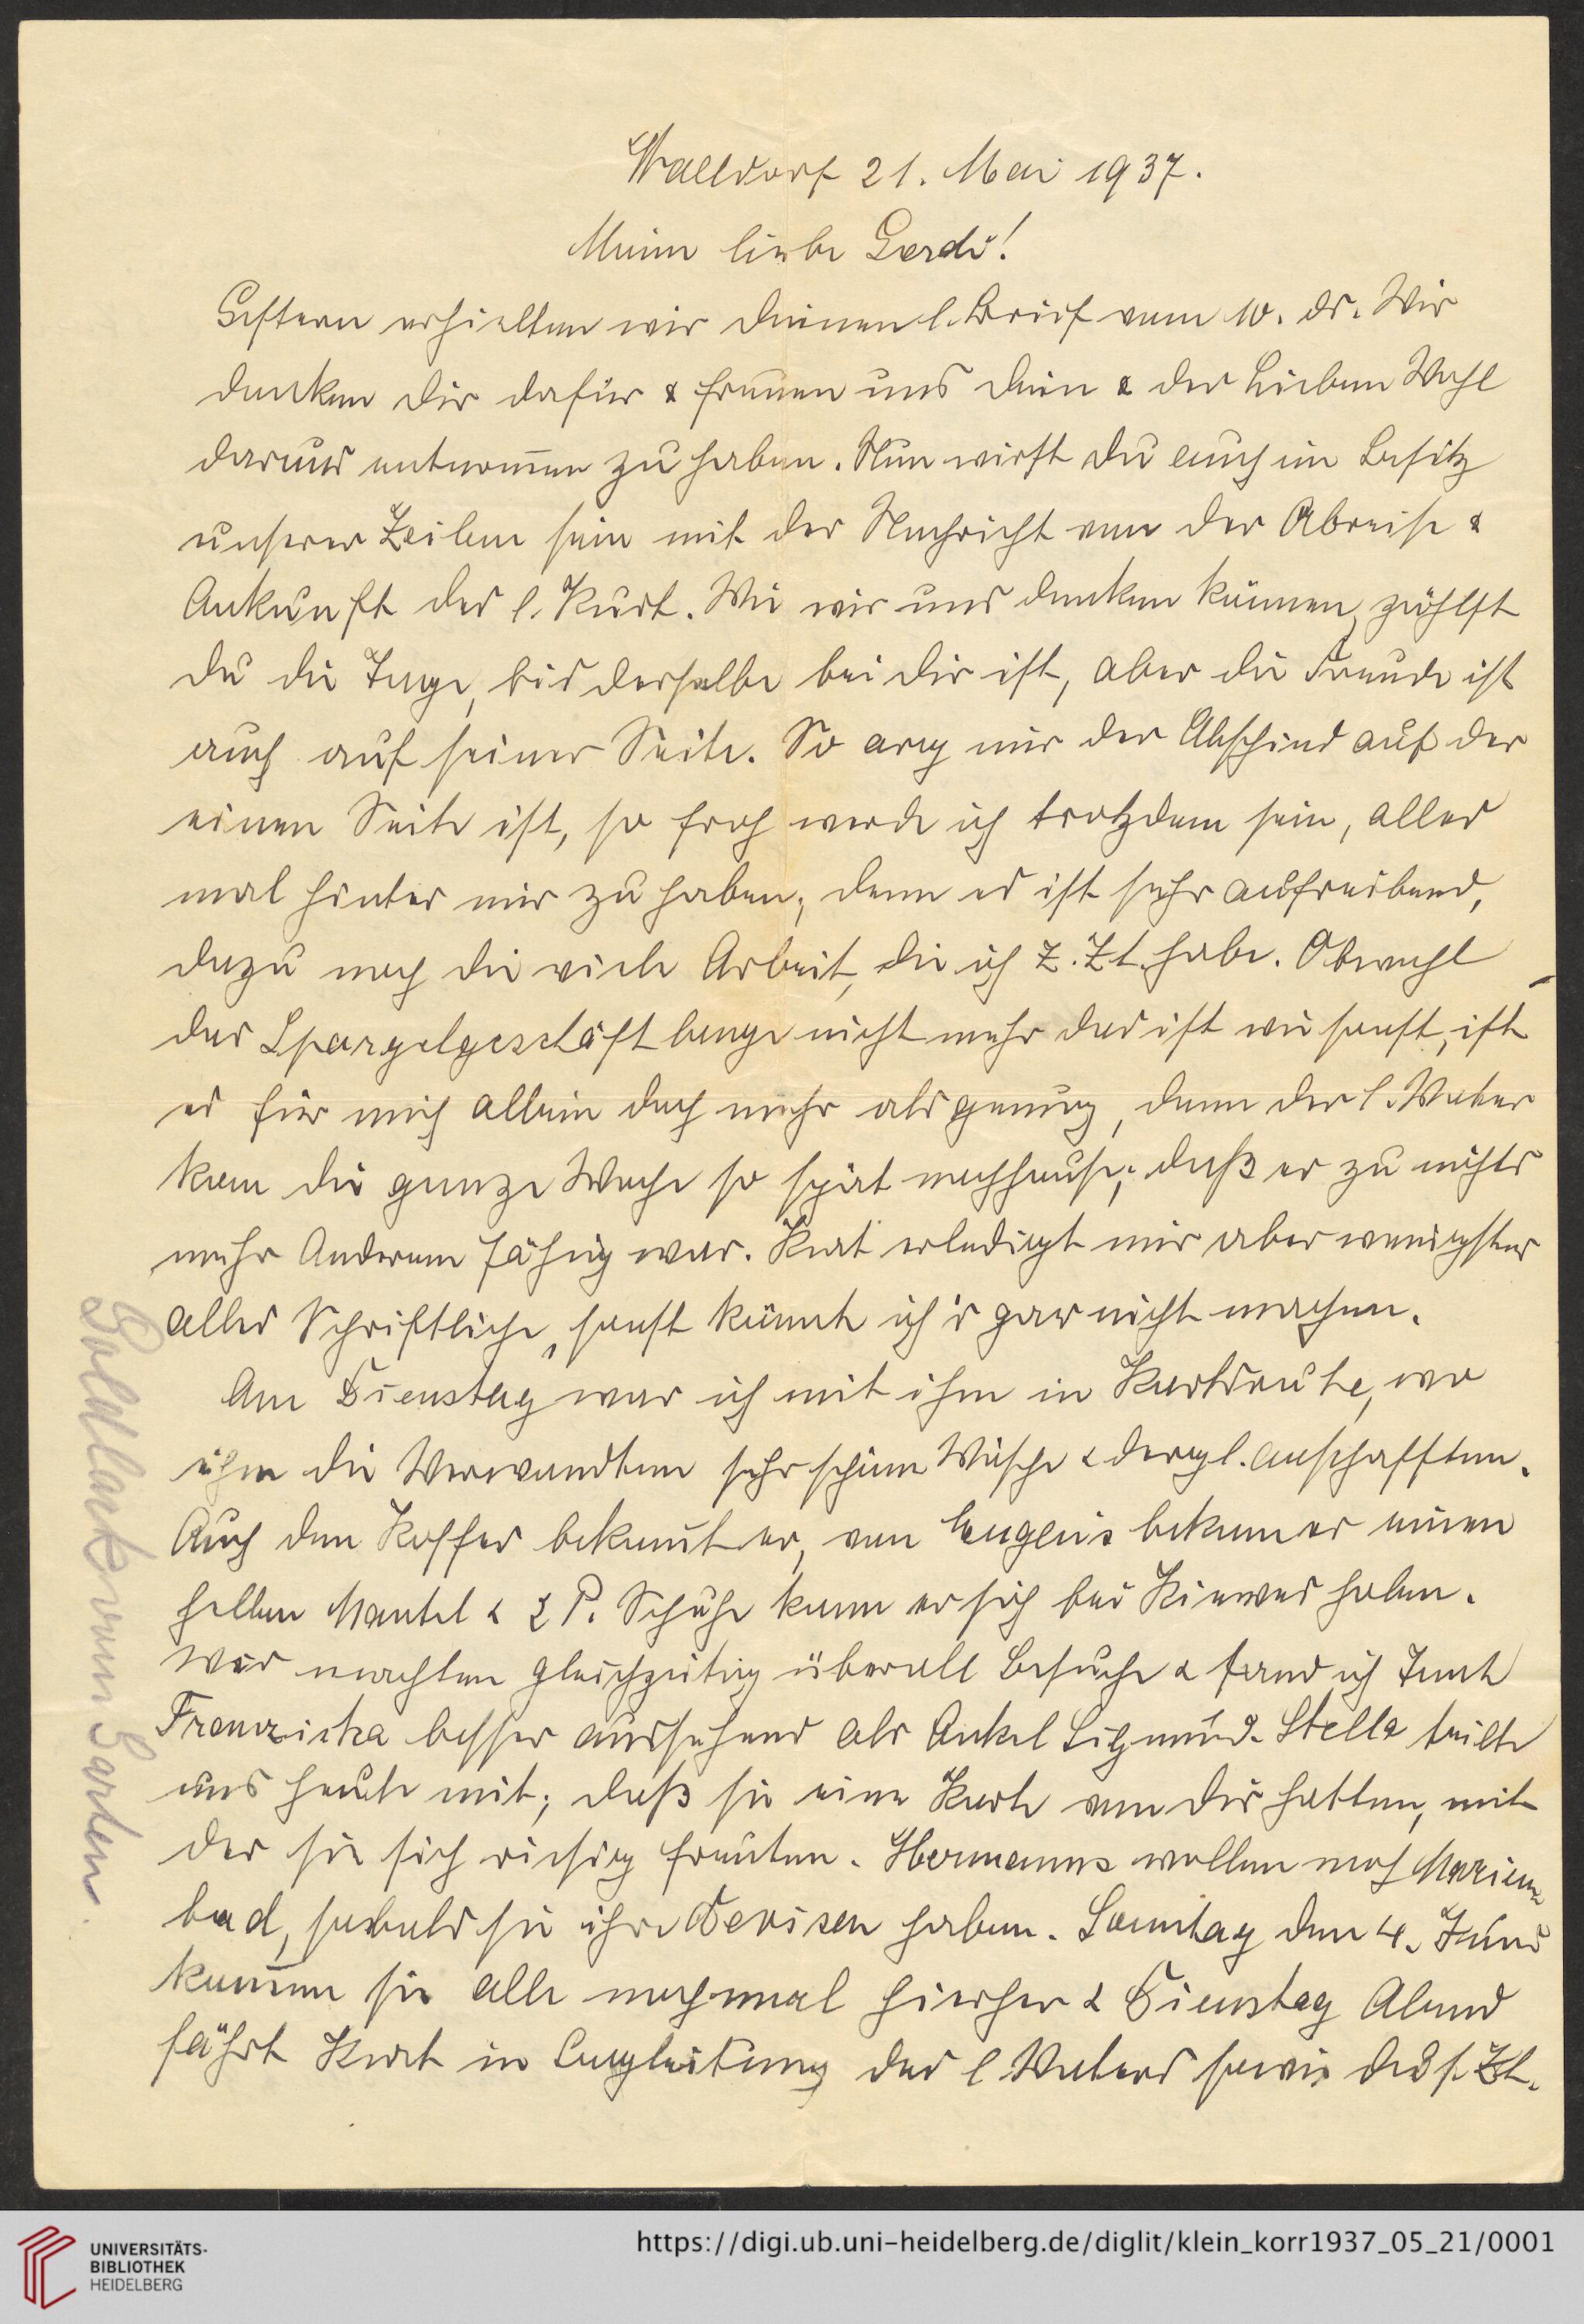 Walldorf 21. Mai 1937.
Meine liebe Gerdi!
Gestern erhielten wir deinen l. Brief vom 10. ds. Wir
danken dir dafür & freuen uns dein & der Lieben Wohl
daraus entnom̄en zu haben. Nun wirst du auch im Besitz
unserer Zeilen sein mit der Nachricht von der Abreise &
Ankunft des l. Kurt. Wie wir uns denken können, zählst
du die Tage, bis derselbe bei dir ist, aber die Freude ist
auch auf seiner Seite. So arg mir der Abschied auf der
einen Seite ist, so froh werde ich trotzdem sein, alles
mal hinter mir zu haben, denn es ist sehr aufreibend,
dazu noch die viele Arbeit, die ich z. Zt. habe. Obwohl
das Spargelgeschäft lange nicht mehr das ist wie sonst, ist
es für mich allein doch mehr als genug, denn der l. Vater
kam die ganze Woche so spät nachhause, daß er zu nichts
mehr Anderem fähig war. Kurt erledigt mir aber wenigstens
alles Schriftliche, sonst könnte ich's gar nicht machen.
Am Dienstag war ich mit ihm in Karlsruhe, wo
ihm die Verwandten sehr schöne Wäsche & dergl. anschafften.
Auch den Koffer bekom̄t er, von Eugens bekam er einen
hellen Mantel & 2 P. Schuhe kann er sich bei holen.
Wir machten gleichzeitig überall Besuche & fand ich Tante
Franziska besser aussehend als Onkel Sigmund. Stella teilte
uns heute mit, daß sie eine Karte von dir hatten, mit
der sie sich riesig freuten. Hermanns wollen nach Marien-
bad, sobald sie ihre Devisen haben. Sonntag den 4. Juni
kom̄en sie alle nochmal hierher & Dienstag Abend
fährt Kurt in Begleitung des l Vaters sowie des s. Zt.
vom Garten
UNIVERSITÄTS-
BIBLIOTHEK
HEIDELBERG
https://digi.ub.uni-heidelberg.de/diglit/klein_korr1937_05_21/0001